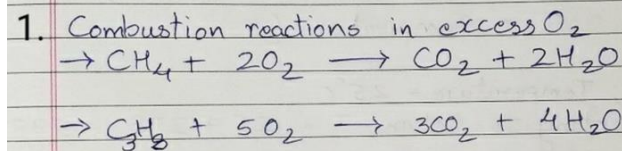 1. Combustion reactions in excess O₂
→ CH₄ + 2O₂ ⟶ CO₂ + 2H₂O
→ C₃H₈ + 5O₂ → 3CO₂ + 4H₂O